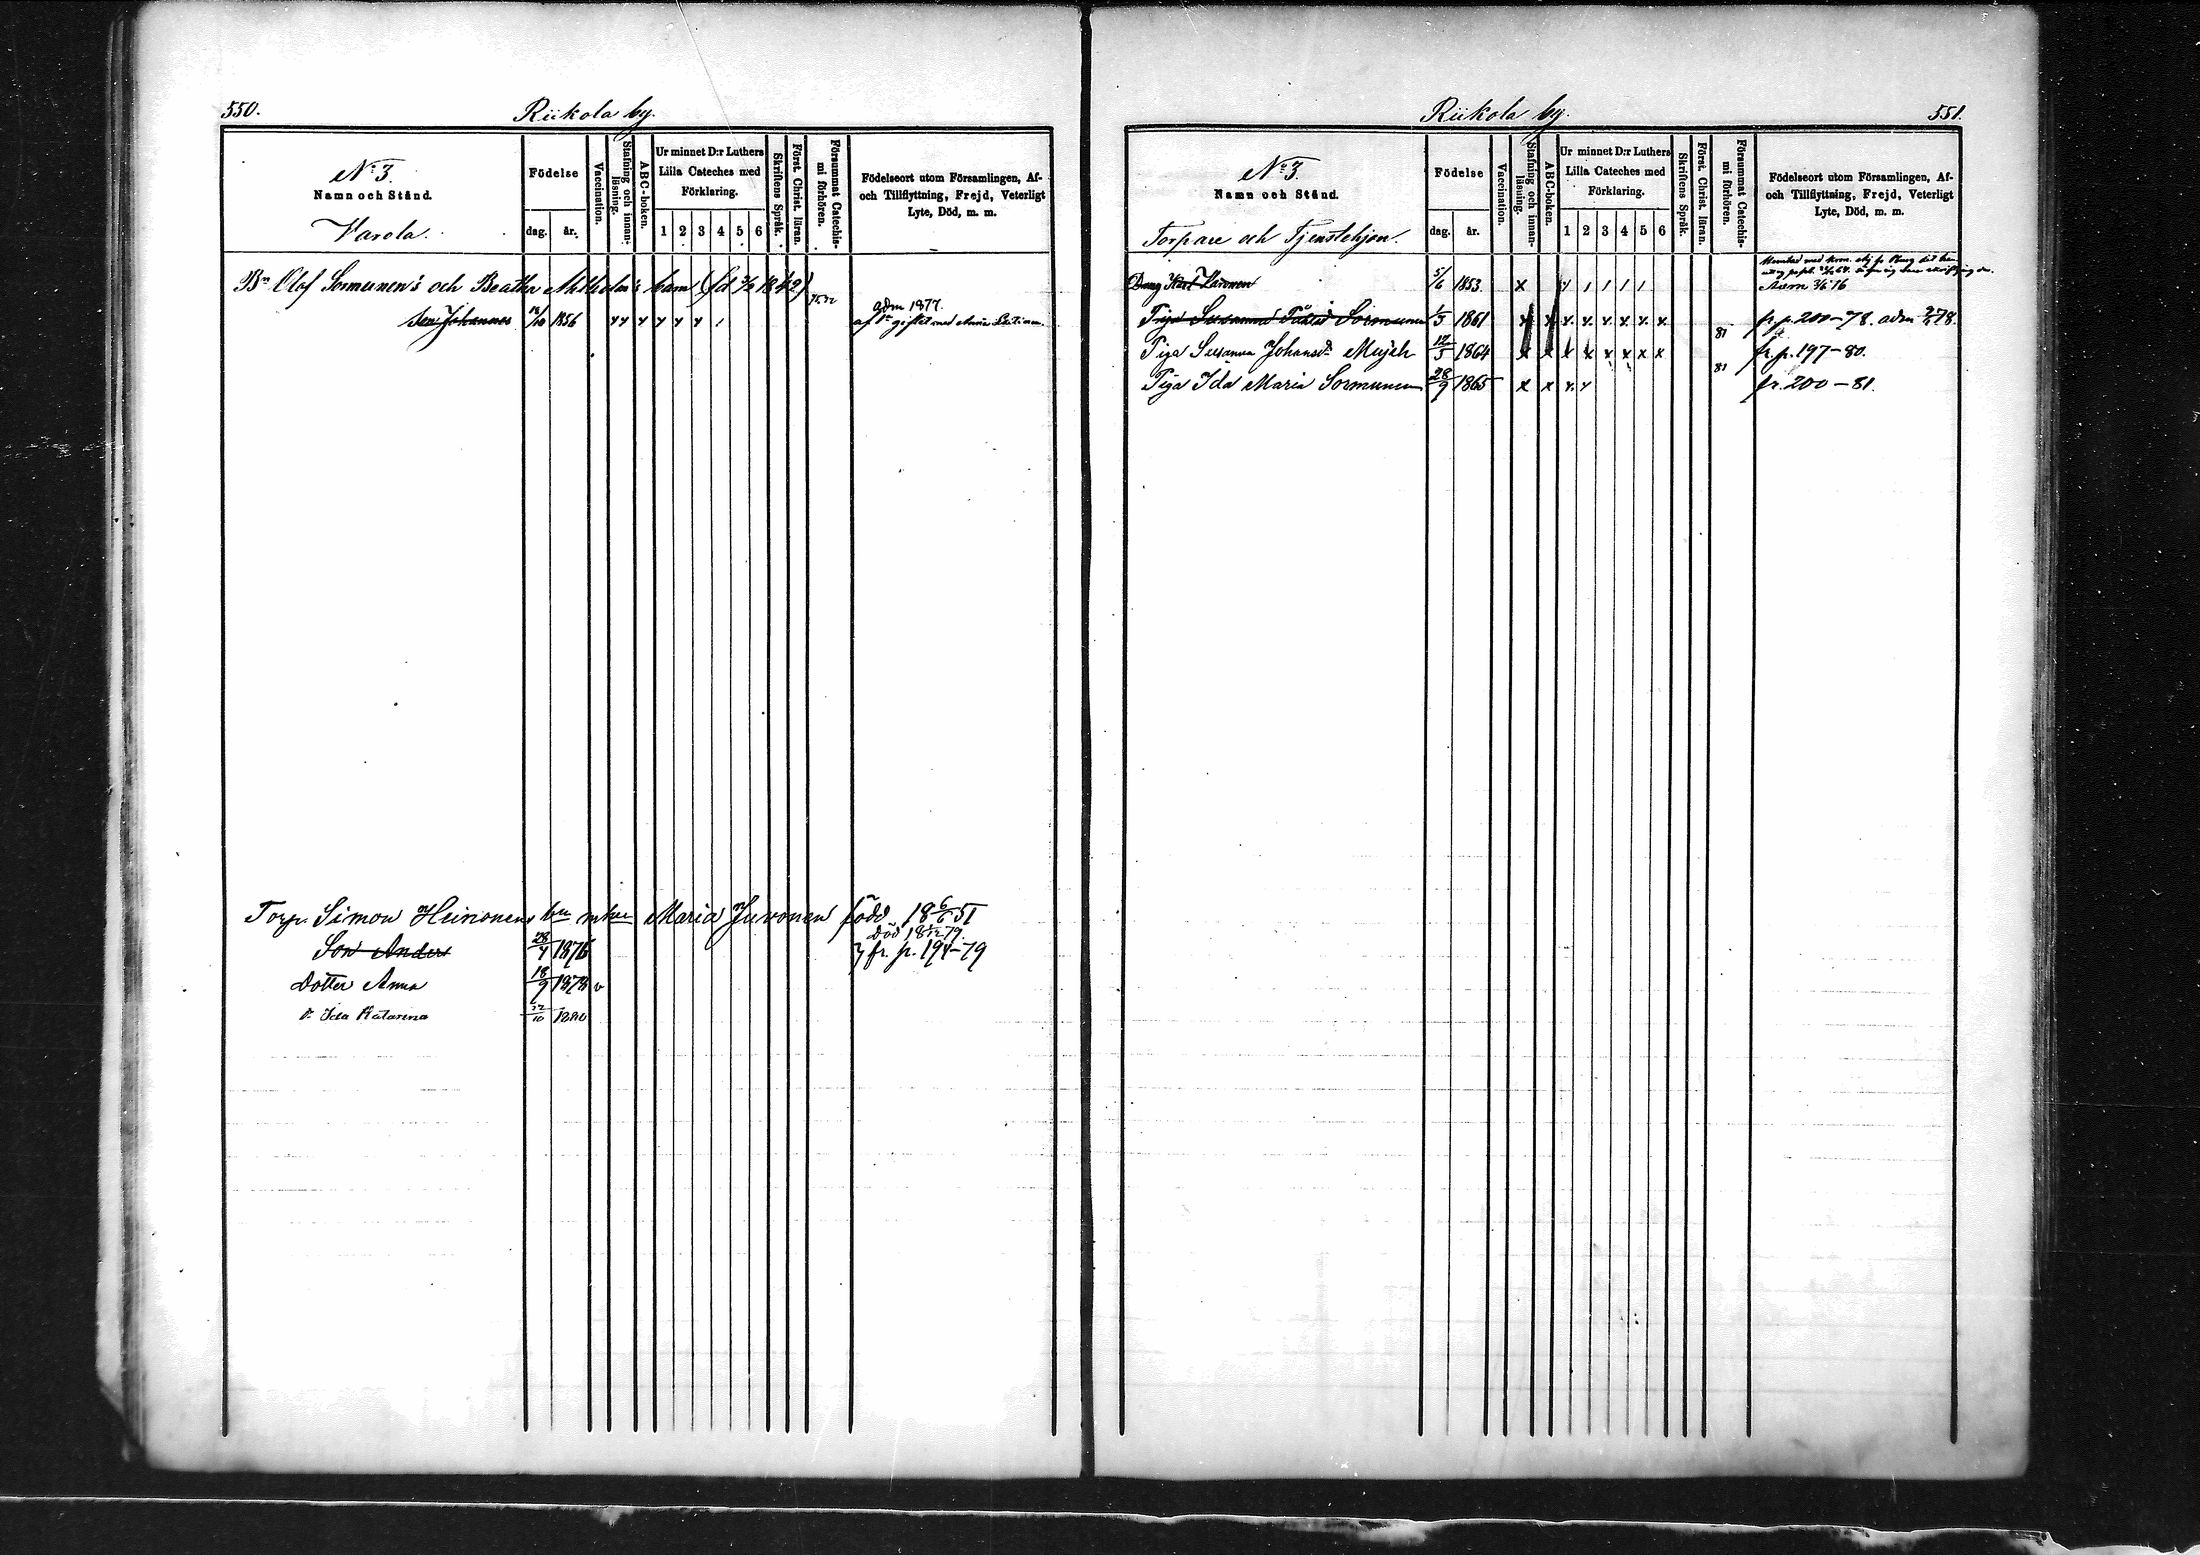 550.
Riikola by.
No 3.
Namn och Stånd.
Varola.
Födelse
dag. år.
Vaccination.
Stafning och innanläsning.
ABC-boken.
Ur minnet D:r Luthers Lilla Cateches med Förklaring.
1 2 3 4 5 6
Skriftens Språk.
Först. Christ. läran.
Försummat Catechismi förhören.
Födelseort utom Församlingen, Af- och Tillflyttning, Frejd, Veterligt Lyte, Död, m. m.
Bn Olof Sormunen's och Beatha barn 1842)
Son Johannes 1856 adm 1877.
giftet med Anna
Torp. Simon Heinonens Maria Juvonen född 18 6/6 51
Död 18 79.
Son Anders 28/4 1876 fr. p. 194-79
Dotter Anna 18/9 1878 v
Ida Katarina 22/10 1880
Riikola by.
551.
No 3.
Namn och Stånd.
Torpare och Tjenstehjon.
Födelse
dag. år.
Vaccination.
Stafning och innanläsning.
ABC-boken.
Ur minnet D:r Luthers Lilla Cateches med Förklaring.
1 2 3 4 5 6
Skriftens Språk.
Först. Christ. läran.
Försummat Catechismi förhören.
Födelseort utom Församlingen, Af- och Tillflyttning, Frejd, Veterligt Lyte, Död, m. m.
Dreng 5/6 1853 x
Piga Susanna Sormunen 1/5 1861 x x x x x x x x fr. p. 200-78. adm 78
Piga Susanna Johansdr 12/5 1864 x x x x x x x x 81 fr. p. 197-80.
Piga Ida Maria Sormunen 28/9 1865 x x x x 81 fr. 200-81.